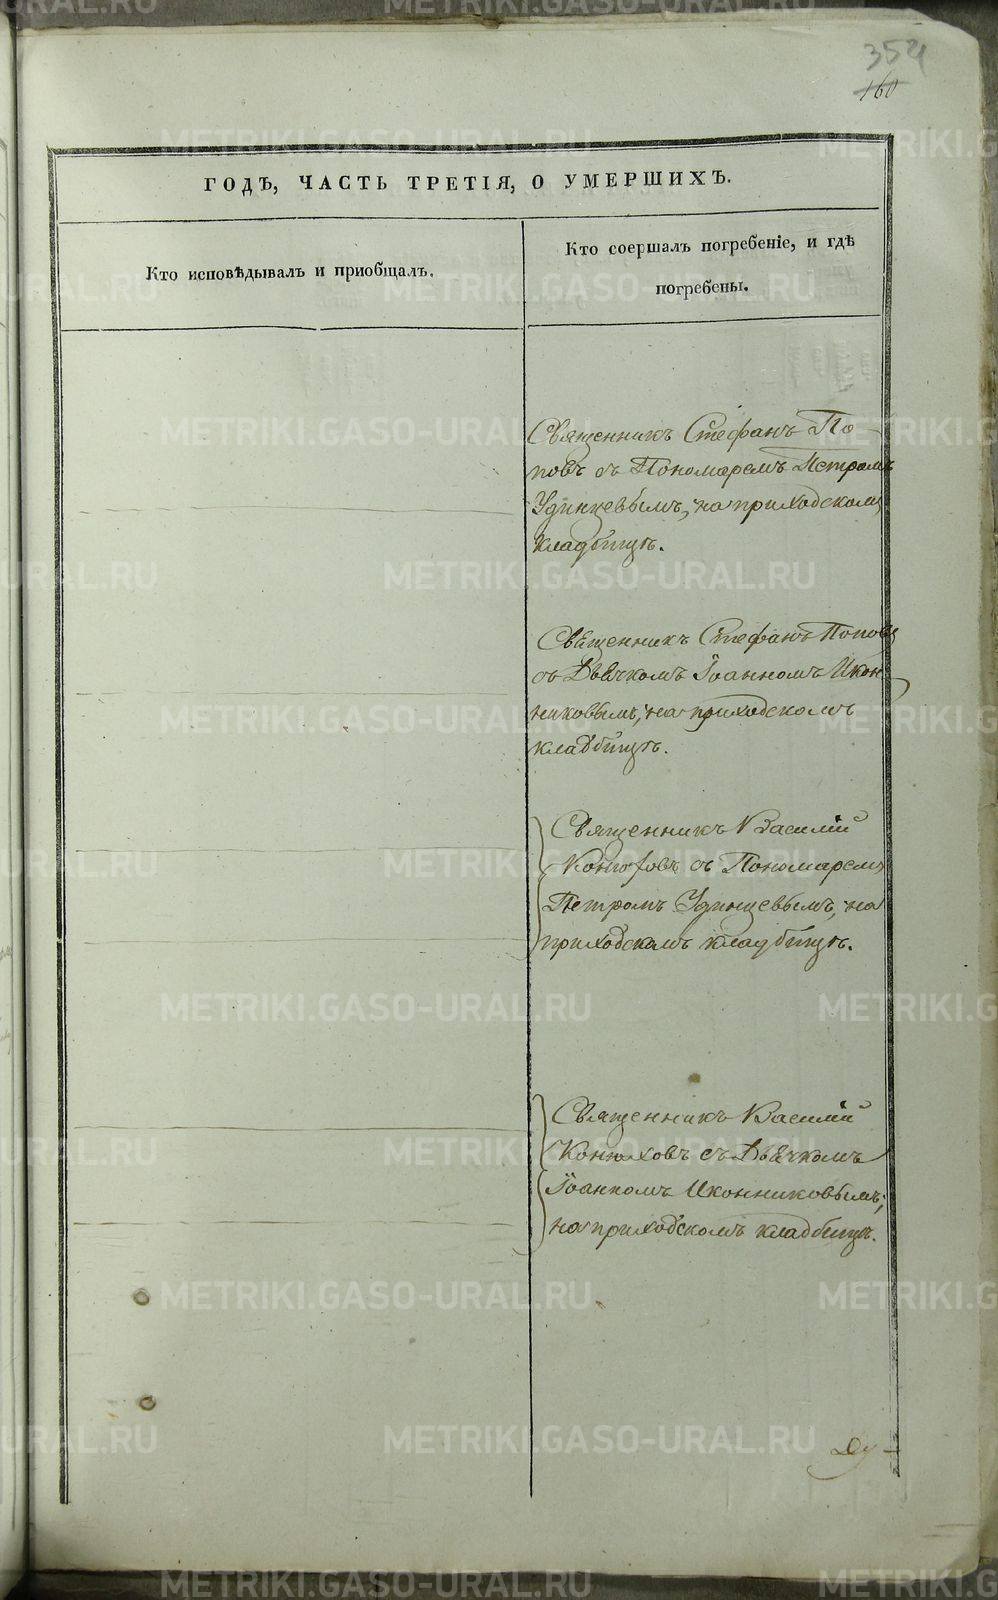 354
160
ГОДЪ, ЧАСТЬ ТРЕТІЯ, О УМЕРШИХЪ.
Кто исповѣдывалъ и пріобщалъ.
Кто соершалъ погребеніе, и гдѣ
погребены.
Священникъ Стефанъ По-
повъ съ Пономаремъ Петромъ
Удинцевымъ, на приходскомъ
кладбищѣ.
Священникъ Стефанъ Поповъ
съ Дьячкомъ Іоанномъ Икон
никовымъ, на приходскомъ
кладбищѣ.
Священникъ Василій
Конюховъ съ Пономаремъ
Петромъ Удинцевымъ, на
приходскомъ кладбищѣ.
Священникъ Василій
Конюховъ съ Дьячкомъ
Іоанномъ Иконниковымъ,
на приходскомъ кладбищѣ.
Ду-
METRIKI.GASO-URAL.RU